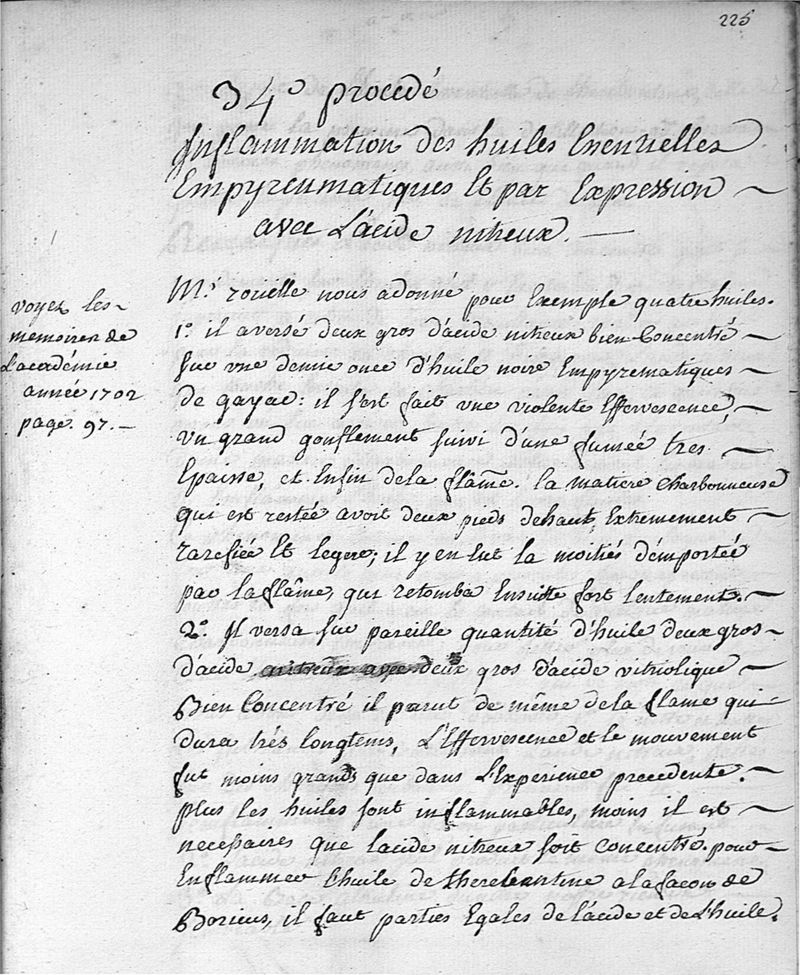 225
34e procedé
Inflammation des huiles Essentielles
Empyreumatiques Et par Expression
avec L'acide nitreux.
voyez les
memoires de
L'académie
année 1702
page. 97.
Mr. rouelle nous a donné pour Exemple quatre huiles.
1o. il a versé deux gros d'acide nitreux bien Concentré
sur une demie once d'huile noire Empyrematiques
de gayac: il s'est fait une violente Effervescence,
un grand gonflement suivi d'une fumée tres
Epaisse, et Enfin de la flâme. la matiere charbonneuse
qui est restée avoit deux pieds de haut, Extremement
rarefiée Et legere; il y en eut la moitiés d'emportée
par la flâme, qui retomba Ensuitte fort lentement.
2o. Il versa sur pareille quantité d'huile deux gros
d'acide nitreux avec deux gros d'acide vitriolique
Bien Concentré il parut de même de la flame qui
dura très longtems, L'Effervescence et le mouvement
fut moins grands que dans L'Experience precedente.
plus les huiles sont inflammables, moins il est
necessaires que lacide nitreux soit concentré. pour
Enflammer L'huile de therebantine a la façon de
Boricius, il faut parties Egales de l'acide et de L'huile.